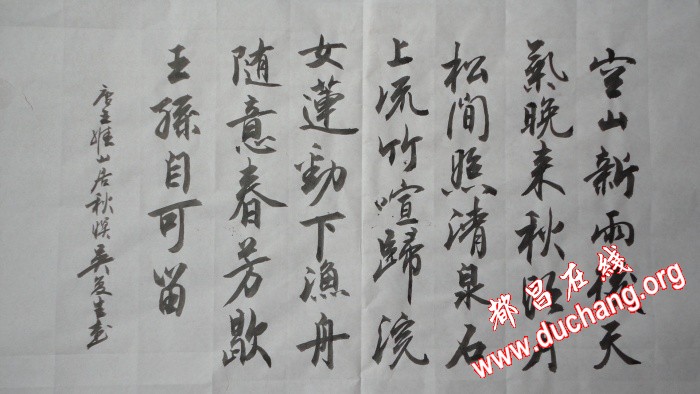 空山新雨後天
氣晚来秋明月
松间照清泉石
上流竹喧歸浣
女蓮動下漁舟
随意春芳歇
王孫自可留
唐王維山居秋暝 吴
都昌在线
www.duchang.org